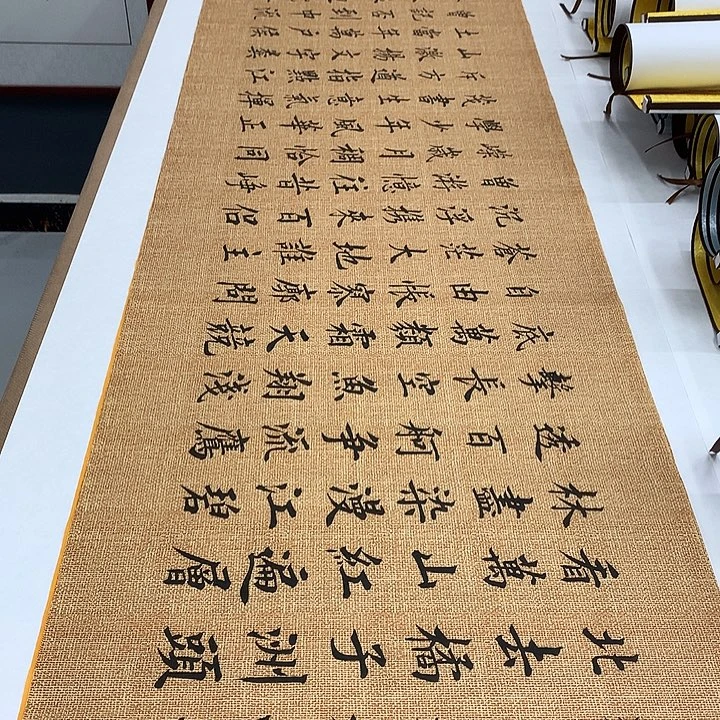 北去橘子洲頭
看萬山紅遍層
林盡染漫江碧
透百舸爭流鷹
擊長空魚翔淺
底萬類霜天競
自由悵寥廓問
蒼茫大地誰主
沉浮携來百侶
曾游憶往昔崢
嶸歲月稠恰同
學少年風華正
茂書生意氣揮
斥方遒指點江
山激揚文字糞
土當年萬戶侯
曾記否到中流